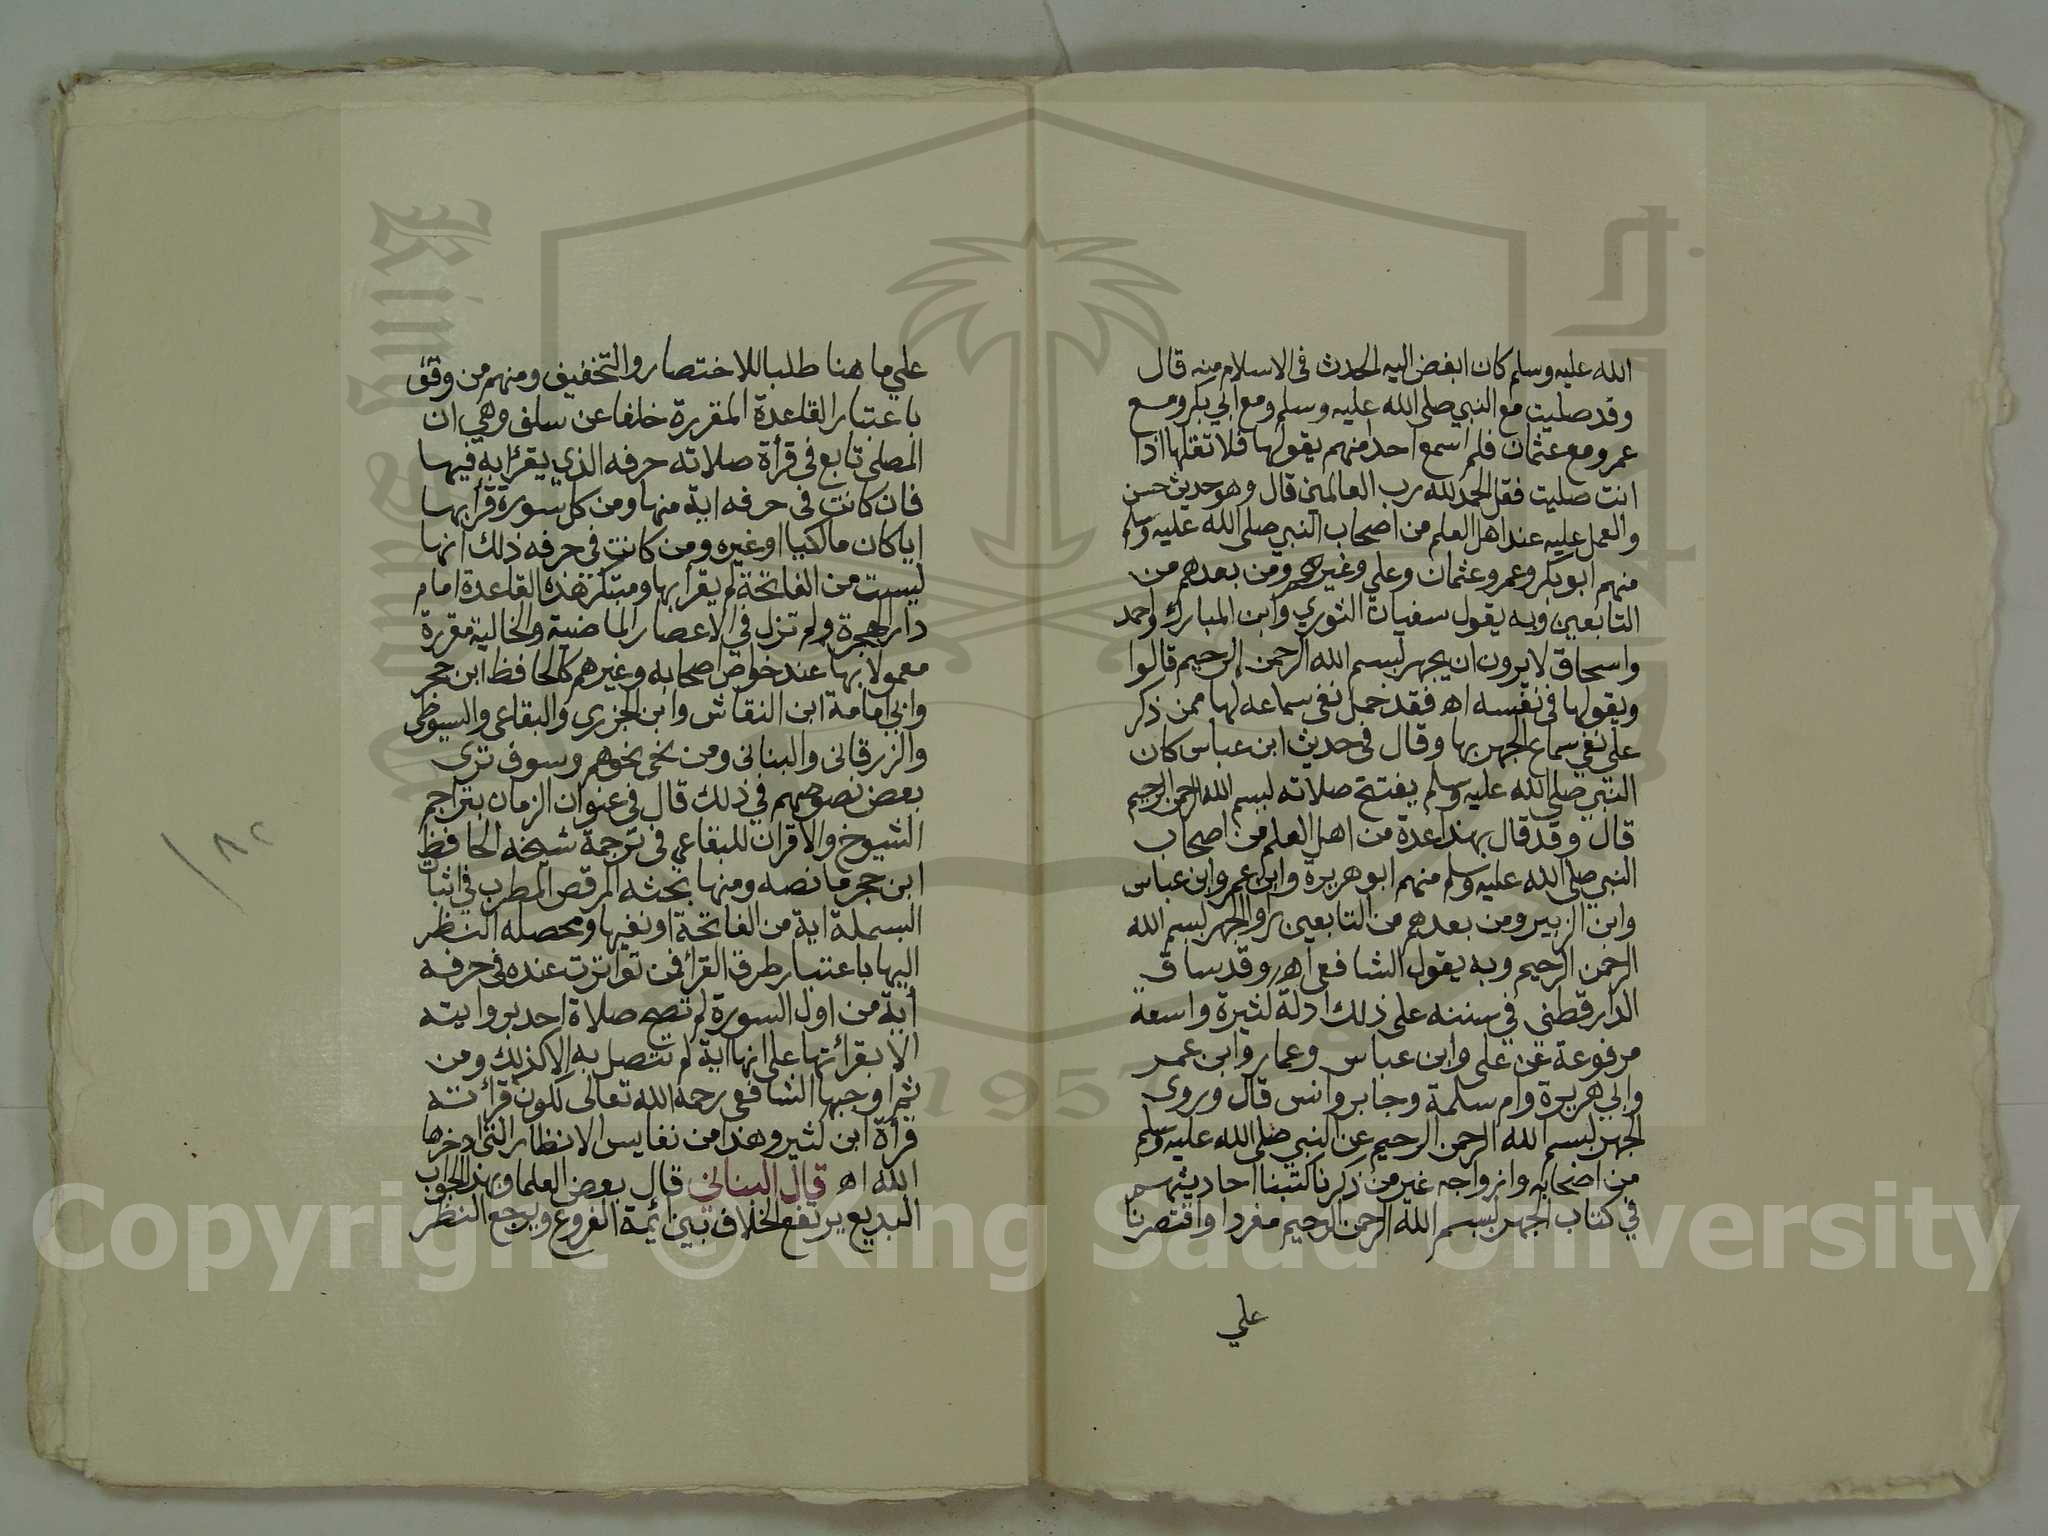 الله عليه وسلم كان ابغض اليه الحدث في الاسلام منه قال
وقد صليت مع النبي صلى الله عليه وسلم ومع ابي بكر ومع
عمر ومع عثمان فلم اسمع احدا منهم يقولها فلا تقلها اذا
انت صليت فقل الحمد لله رب العالمين قال وهو حديث حسن
والعمل عليه عند اهل العلم من اصحاب النبي صلى الله عليه وسلم
منهم ابو بكر وعمر وعثمان وعلي وغيرهم ومن بعدهم من
التابعين وبه يقول سفيان الثوري وابن المبارك واحمد
واسحاق لا يرون ان يجهر بسم الله الرحمن الرحيم قالوا
ويقولها في نفسه اه فقد حمل نفي سماعه لها ممن ذكر
على نفي سماع الجهر بها وقال في حديث ابن عباس كان
النبي صلى الله عليه وسلم يفتتح صلاته ببسم الله الرحمن الرحيم
قال وقد قال بهذا عدة من اهل العلم من اصحاب
النبي صلى الله عليه وسلم منهم ابو هريرة وابن عمر وابن عباس
وابن الزبير ومن بعدهم من التابعين راوا الجهر ببسم الله
الرحمن الرحيم وبه يقول الشافعي اهـ وقد ساق
الدارقطني في سننه على ذلك ادلة كثيرة واسعة
مرفوعة عن علي وابن عباس وعمار وابن عمر
وابي هريرة وام سلمة وجابر وانس قال وروى
الجهر ببسم الله الرحمن الرحيم عن النبي صلى الله عليه وسلم
من اصحابه وازواجه غير من ذكرنا كتبنا احاديثهم
في كتاب الجهر ببسم الله الرحمن الرحيم مفردا واقتصرنا
علي
علي ما هنا طلبا للاختصار والتخفيف ومنهم من وفق
باعتبار القاعدة المقررة خلفا عن سلف وهي ان
المصلى تابع في قرأة صلاته حرفه الذي يقرئ به فيها
فان كانت في حرفه اية منها ومن كل سورة قرأ بها
ايا كان مالكيا او غيره ومن كانت في حرفه ذلك انها
ليست من الفاتحة لم يقرأ بها ومبتكر هذه القاعدة امام
دار الهجرة ولم تزل في الاعصار الماضية والخالية مقررة
معمولا بها عند خواص اصحابه وغيرهم كالحافظ ابن حجر
وابي امامة ابن النقاش وابن الجزري والبقاعي والسيوطي
والزرقاني والبناني ومن نحى نحوهم وسوف ترى
بعض نصوصهم في ذلك قال في عنوان الزمان بتراجم
الشيوخ والاقران للبقاعي في ترجمة شيخه الحافظ
ابن حجر ما نصه ومنها بحثه المرقص المطرب في اثبات
البسملة اية من الفاتحة او نفيها ومحصله النظر
اليها باعتبار طرق القرأ فمن تواترت عنده في حرفه
أية من اول السورة لم تصح صلاة احد بروايته
الا بقرأتها على انها اية لم تتصل به الا كذلك ومن
ثم اوجبها الشافعي رحمه الله تعالى لكون قرأته
قرأة ابن كثير وهذا من نفايس الانظار التي ادخرها
الله اه قال البناني قال بعض العلما وبهذا الجواب
البديع يرتفع الخلاف بين ائمة الفروع ويرجع النظر
١٨٢
1957
Copyright © King Saud University